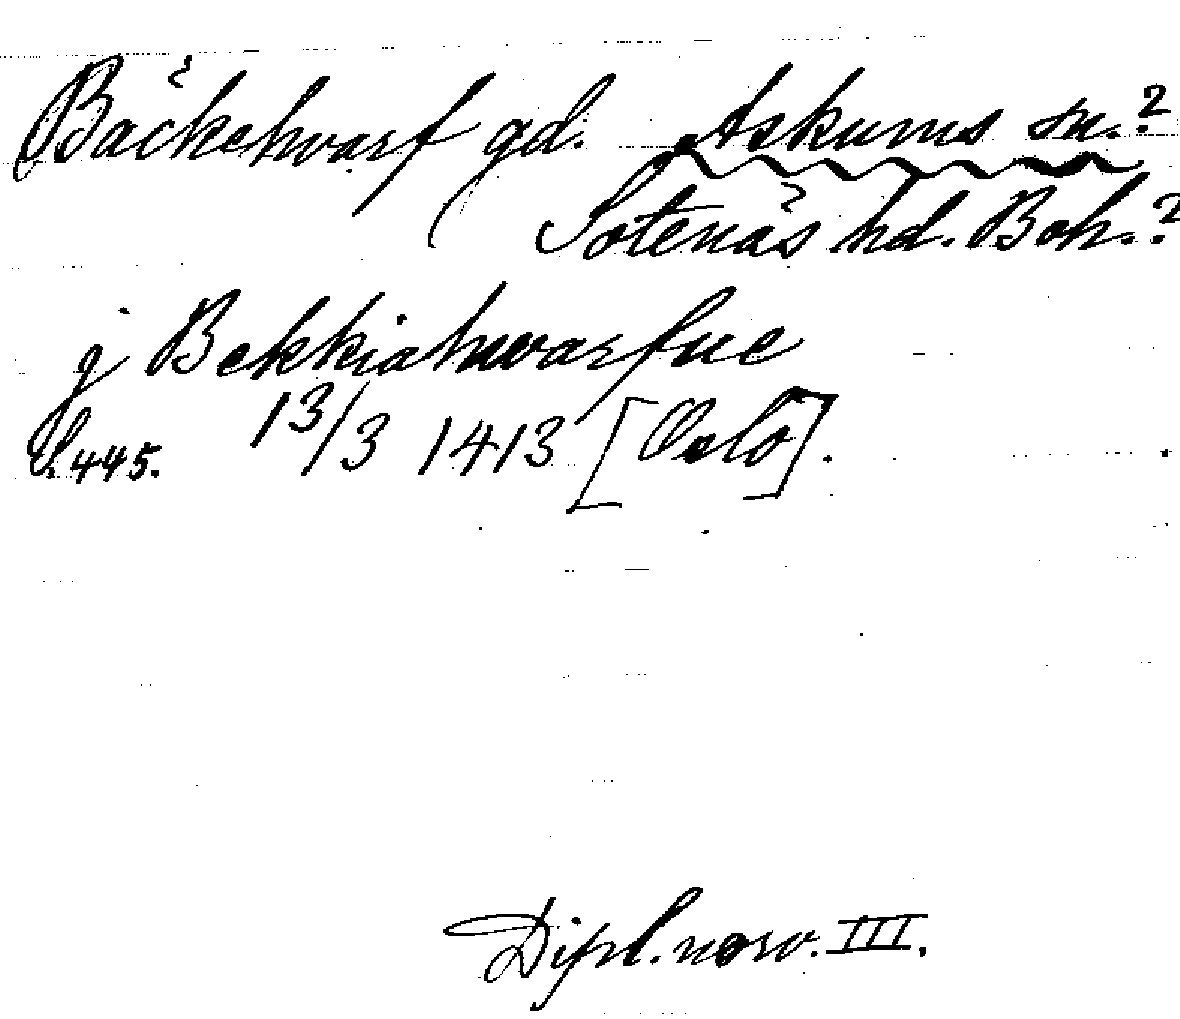 Bäckehvarf gd. Askums sn.?
Sotenäs hd. Boh.?
j Bekkiahwarfue
S. 445. 13/3 1413 [Oslo].
Dipl. norv. III.